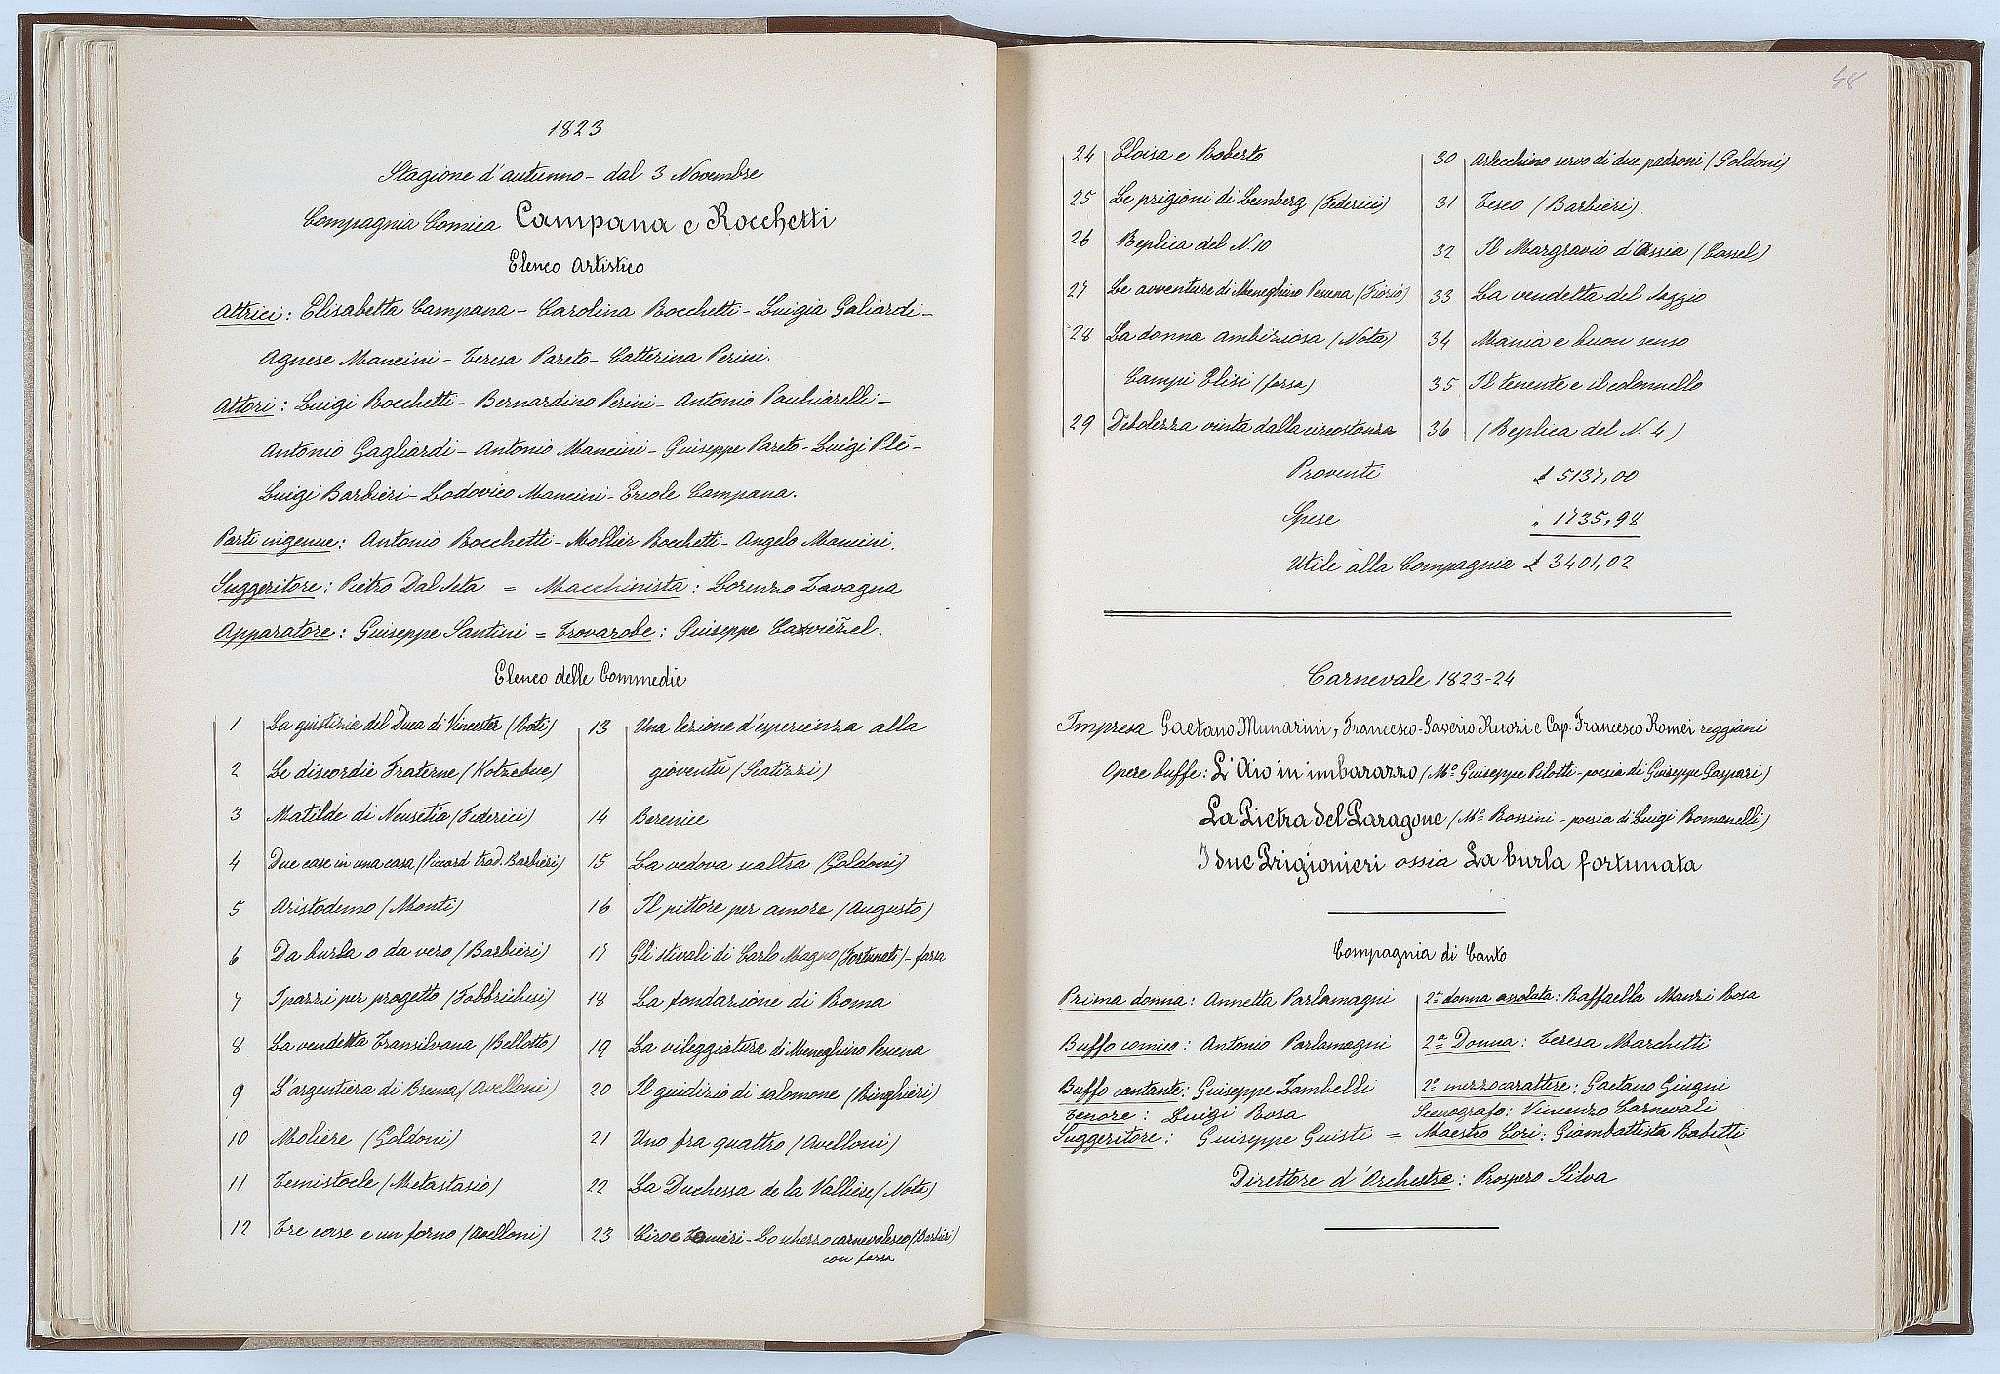 1823
Stagione d'autunno - dal 3 Novembre
Compagnia Comica Campana e Rocchetti
Elenco Artistico
Attrici: Elisabetta Campana - Carolina Rocchetti - Luigia Galiardi -
Agnese Mancini - Teresa Pareto - Catterina Perini.
Attori: Luigi Rocchetti - Bernardino Perini - Antonio Pauhiarelli -
Antonio Gagliardi - Antonio Mancini - Giuseppe Pareto - Luigi Plè -
Luigi Barbieri - Lodovico Mancini - Ercole Campana.
Parti ingenue: Antonio Rocchetti - Mollier Rocchetti - Angelo Mancini.
Suggeritore: Pietro Dal Seta = Macchinista: Lorenzo Zavagna
Apparatore: Giuseppe Santini = Trovarobe: Giuseppe
Elenco delle Commedie
1 La giustizia del Duca di Vincester (Roti)
2 Le discordie Fraterne (Kotzebue)
3 Matilde di Neusetia (Federici)
4 Due case in una casa (Piccard trad. Barbieri)
5 Aristodemo (Monti)
6 Da burla o da vero (Barbieri)
7 I pazzi per progetto (Fabbrichesi)
8 La vendetta Transilvana (Bellotto)
9 L'argentiera di Bruna (Avelloni)
10 Moliere (Goldoni)
11 Temistocle (Metastasio)
12 Tre case e un forno (Avelloni)
13 Una lezione d'sperienza alla
gioventù (Scatizzi)
14 Berenice
15 La vedova scaltra (Goldoni)
16 Il pittore per amore (Augusto)
17 Gli stivali di Carlo Magno (Fortunati) - farsa
18 La fondazione di Roma
19 La vileggiatura di Meneghino Pecena
20 Il giudizio di salomone (Ringhieri)
21 Uno fra quattro (Avelloni)
22 La Duchessa de la Valliere (Nota)
23 Ciro e Tomieri - Lo scherzo carnevalesco (Barbieri)
con farsa
48
24 Eloisa e Roberto
25 Le prigioni di Lemberg (Federici)
26 Replica del N. 10
27 Le avventure di Meneghino Pecena (Fiorio)
28 La donna ambiziosa (Nota)
Campi Elisi (farsa)
29 Debolezza vinta dalla circostanza
30 Arlecchino servo di due padroni (Goldoni)
31 Teseo (Barbieri).
32 Il Margravio d'Assia (Cassel)
33 La vendetta del saggio
34 Mania e buon senso
35 Il tenente e il colonnello
36 (Replica del N. 4)
Proventi £ 5137,00
Spese " 1735,98
Utile alla Compagnia £ 3401,02
Carnevale 1823-24
Impresa Gaetano Munarini, Francesco-Saverio Ruozi e Cap. Francesco Romei reggiani
Opere buffe: L'Aio in imbarazzo (Mo Giuseppe Pilotti - poesia di Giuseppe Gaspari)
La Pietra del Paragone (Mo Rossini - poesia di Luigi Romanelli)
I due Prigionieri ossia La burla fortunata
Compagnia di Canto
Prima donna: Annetta Parlamagni
Buffo comico: Antonio Parlamagni
Buffo cantante: Giuseppe Zambelli
Tenore: Luigi Rosa
2a donna assoluta: Raffaella Manzi Rosa
2a Donna: Teresa Marchetti
2o mezzo carattere: Gaetano Giugni
Scenografo: Vincenzo Carnevali
Suggeritore: Giuseppe Guisti = Maestro Cori: Giambattista Rabitti
Direttore d'Orchestra: Prospero Silva